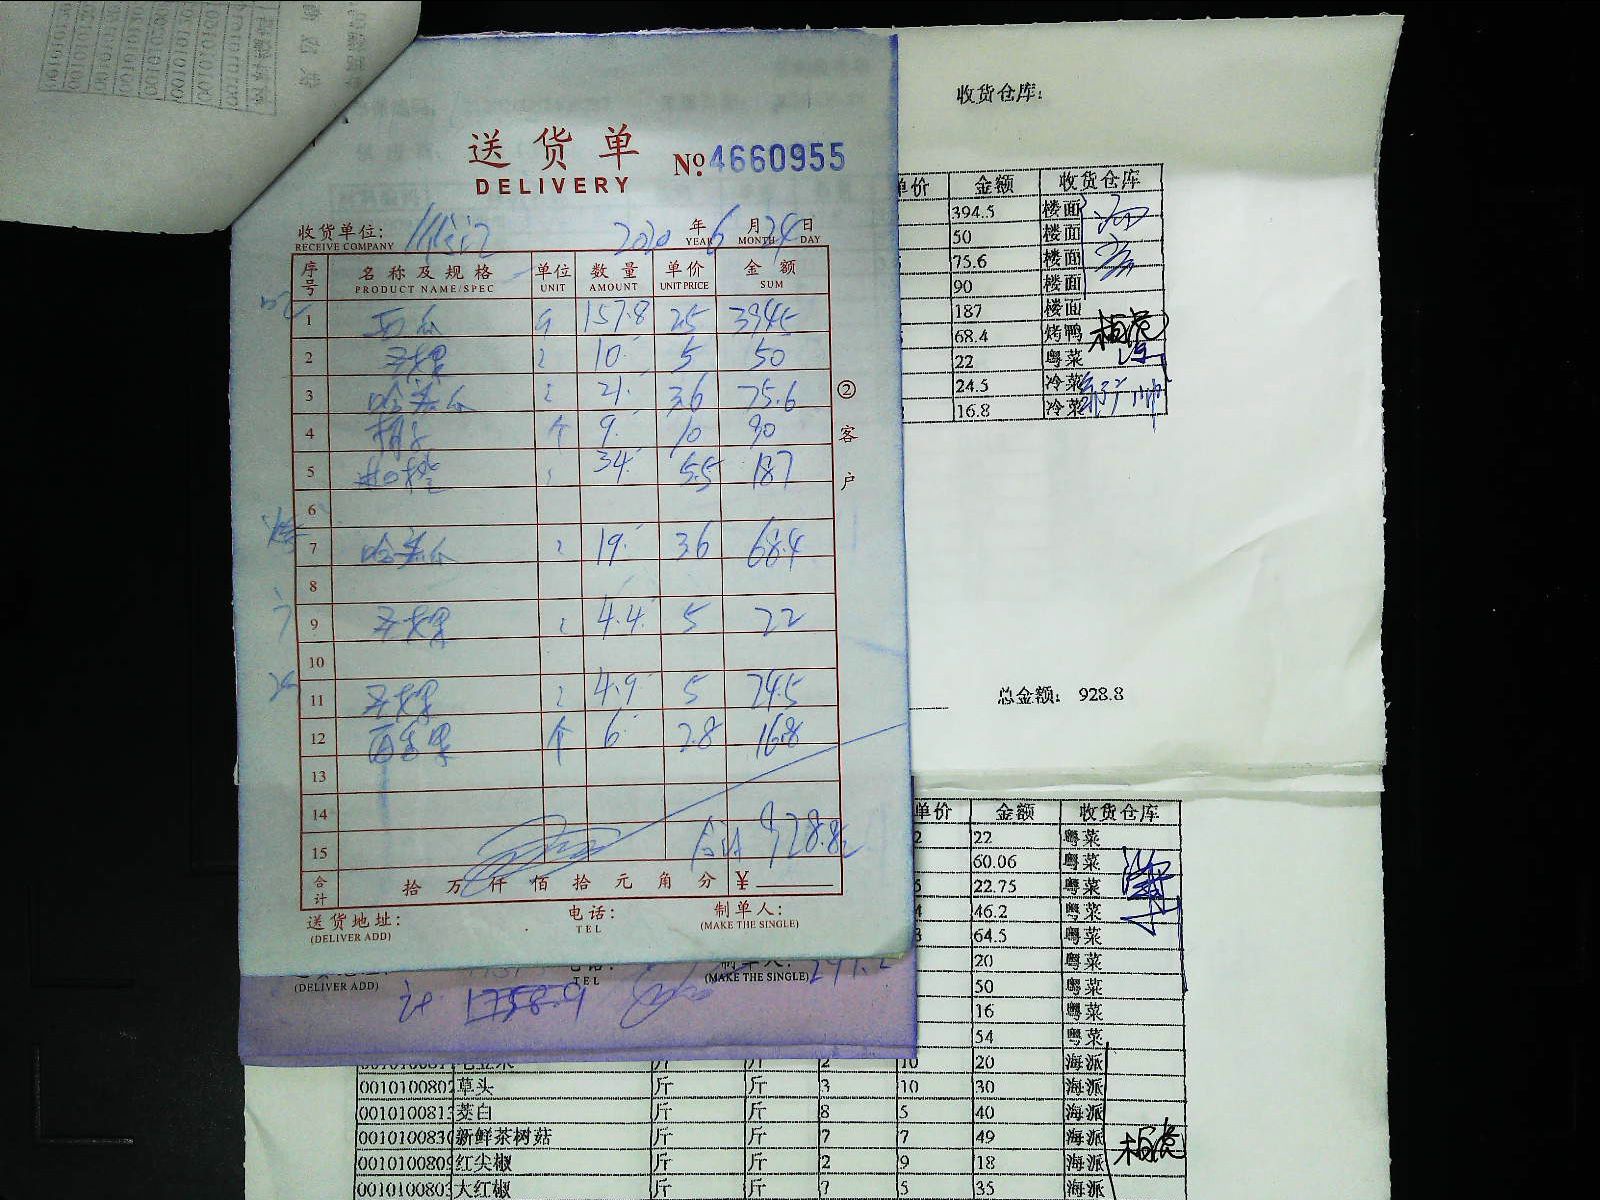 收货仓库:
送货单
DELIVERY
No. 4660955
收货单位: 2020 年 6 月 24 日
RECEIVE COMPANY YEAR MONTH DAY
序号 名称及规格 单位 数量 单价 金额
PRODUCT NAME/SPEC UNIT AMOUNT UNIT PRICE SUM
1 西瓜 斤 157.8 25 394.5
2 芒果 10 5 50
3 哈密瓜 21 3.6 75.6
4 个 9 10 90
5 进口橙 34 5.5 187
6
7 哈密瓜 19 3.6 68.4
8
9 芒果 4.4 5 22
10
11 芒果 4.9 5 24.5
12 百香果 个 6 2.8 16.8
13
14
15 合计 928.8
合计 拾 万 仟 佰 拾 元 角 分 ¥
送货地址: 电话: 制单人:
(DELIVER ADD) TEL (MAKE THE SINGLE)
②客户
(DELIVER ADD) TEL (MAKE THE SINGLE)
单价 金额 收货仓库
394.5 楼面
50 楼面
75.6 楼面
90 楼面
187 楼面
68.4 烤鸭
22 粤菜
24.5 冷菜
16.8 冷菜
总金额: 928.8
单价 金额 收货仓库
2 22 粤菜
60.06 粤菜
22.75 粤菜
46.2 粤菜
64.5 粤菜
20 粤菜
50 粤菜
16 粤菜
54 粤菜
斤 斤 2 10 20 海派
001010080 草头 斤 斤 3 10 30 海派
001010081 茭白 斤 斤 8 5 40 海派
001010083 新鲜茶树菇 斤 斤 7 7 49 海派
001010080 红尖椒 斤 斤 2 9 18 海派
001010080 大红椒 斤 斤 7 5 35 海派